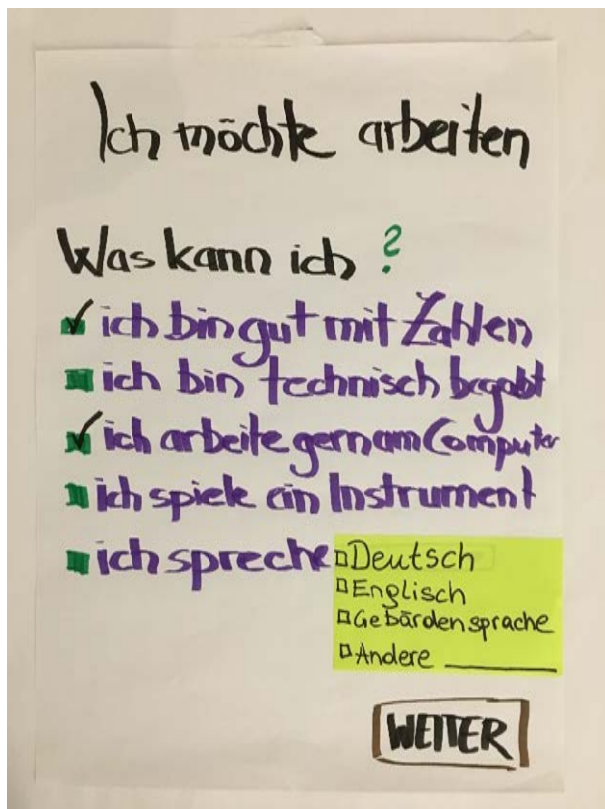 Ich möchte arbeiten
Was kann ich?
ich bin gut mit Zahlen
ich bin technisch begabt
ich arbeite gern am Computer
ich spiele ein Instrument
ich spreche
Deutsch
Englisch
Gebärdensprache
Andere
WEITER